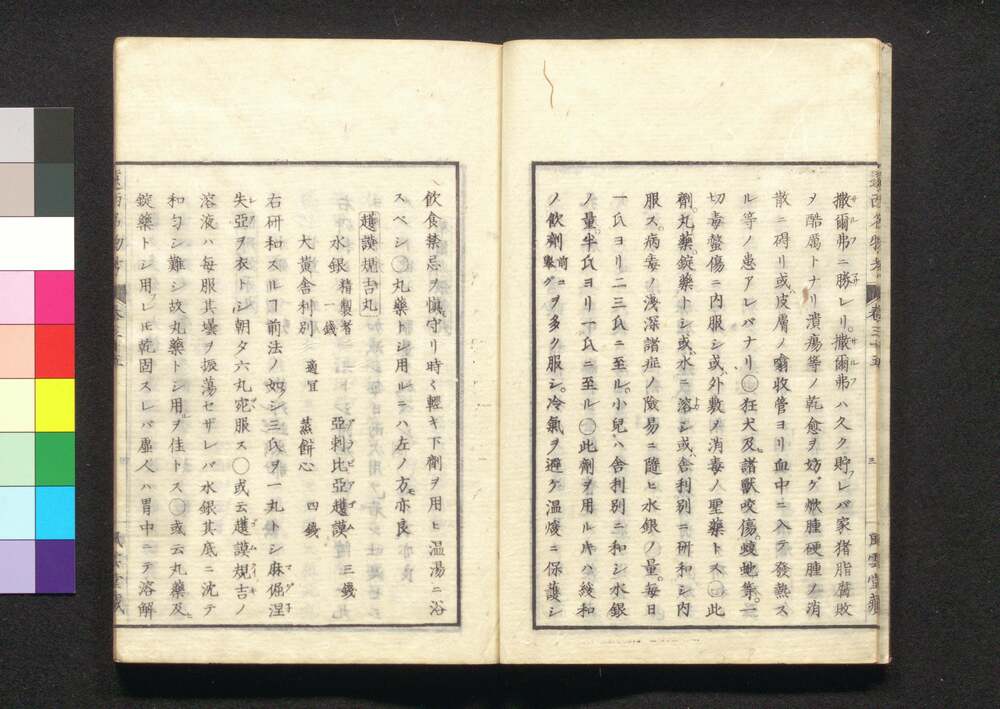 撒爾弗ニ勝レリ。撒爾弗ハ久ク貯レバ家猪脂腐敗
ヲ酷厲トナリ潰瘍等ノ乾愈ヲ妨ゲ焮腫硬腫ノ消
散ニ碍リ或皮膚ノ噏收管ヨリ血中ニ入テ發熱ス
ル等ノ患アレバナリ〇狂犬及諸獸咬傷。蝮蛇等。一
切毒螫傷ニ内服シ或外敷メ消毒ノ聖藥トス〇此
劑。丸藥。錠藥トシ。或水ニ溶シ或舎利別ニ研和シ内
服ス。病毒ノ淺深諸症ノ險易ニ隨ヒ水銀ノ量。每日
一氏ヨリ二三氏ニ至ル。小兒ハ舎利別ニ和シ水銀
ノ量。半氏ヨリ一氏ニ至ル〇此劑ヲ用ルキハ緩和
ノ飲劑前ニ擧グヲ多ク服シ。冷氣ヲ避ケ溫煖ニ保護シ
飲食禁忌ヲ愼守リ時々輕キ下劑ヲ用ヒ温湯ニ浴
スベシ〇丸藥トシ用ルニハ左ノ方亦良
護謨規吉丸
水銀精製者一錢 亞剌比亞護謨 三錢
大黃舎利別 適宜 蒸餅心 四錢
右研和スルヿ前法ノ如シ三氏ヲ一丸トシ麻倔涅
失亞ヲ衣トシ朝夕六丸宛服ス〇或云護謨規吉ノ
溶液ハ每服其壜ヲ振蕩セザレバ水銀其底ニ沈テ
和勻シ難シ故丸藥トシ用ヲ佳トス〇或云丸藥及
錠藥トシ用レ𪜈乾固スレバ虛人ハ胃中ニテ溶解
遠西名物考 卷三十五
三
風雲堂藏